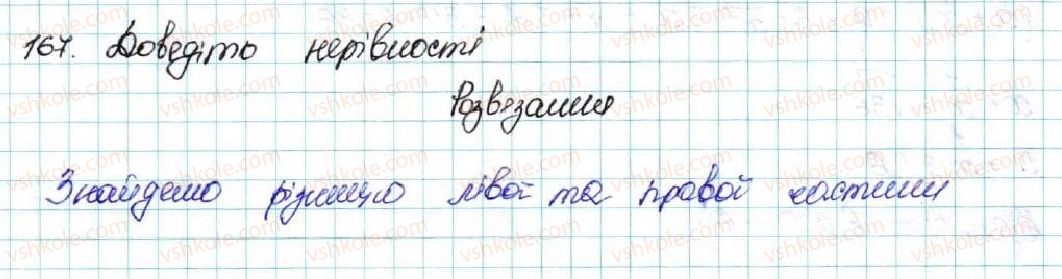 167. Доведіть нерівності
Розвязання
Знайдемо різницю лівої та правої частини